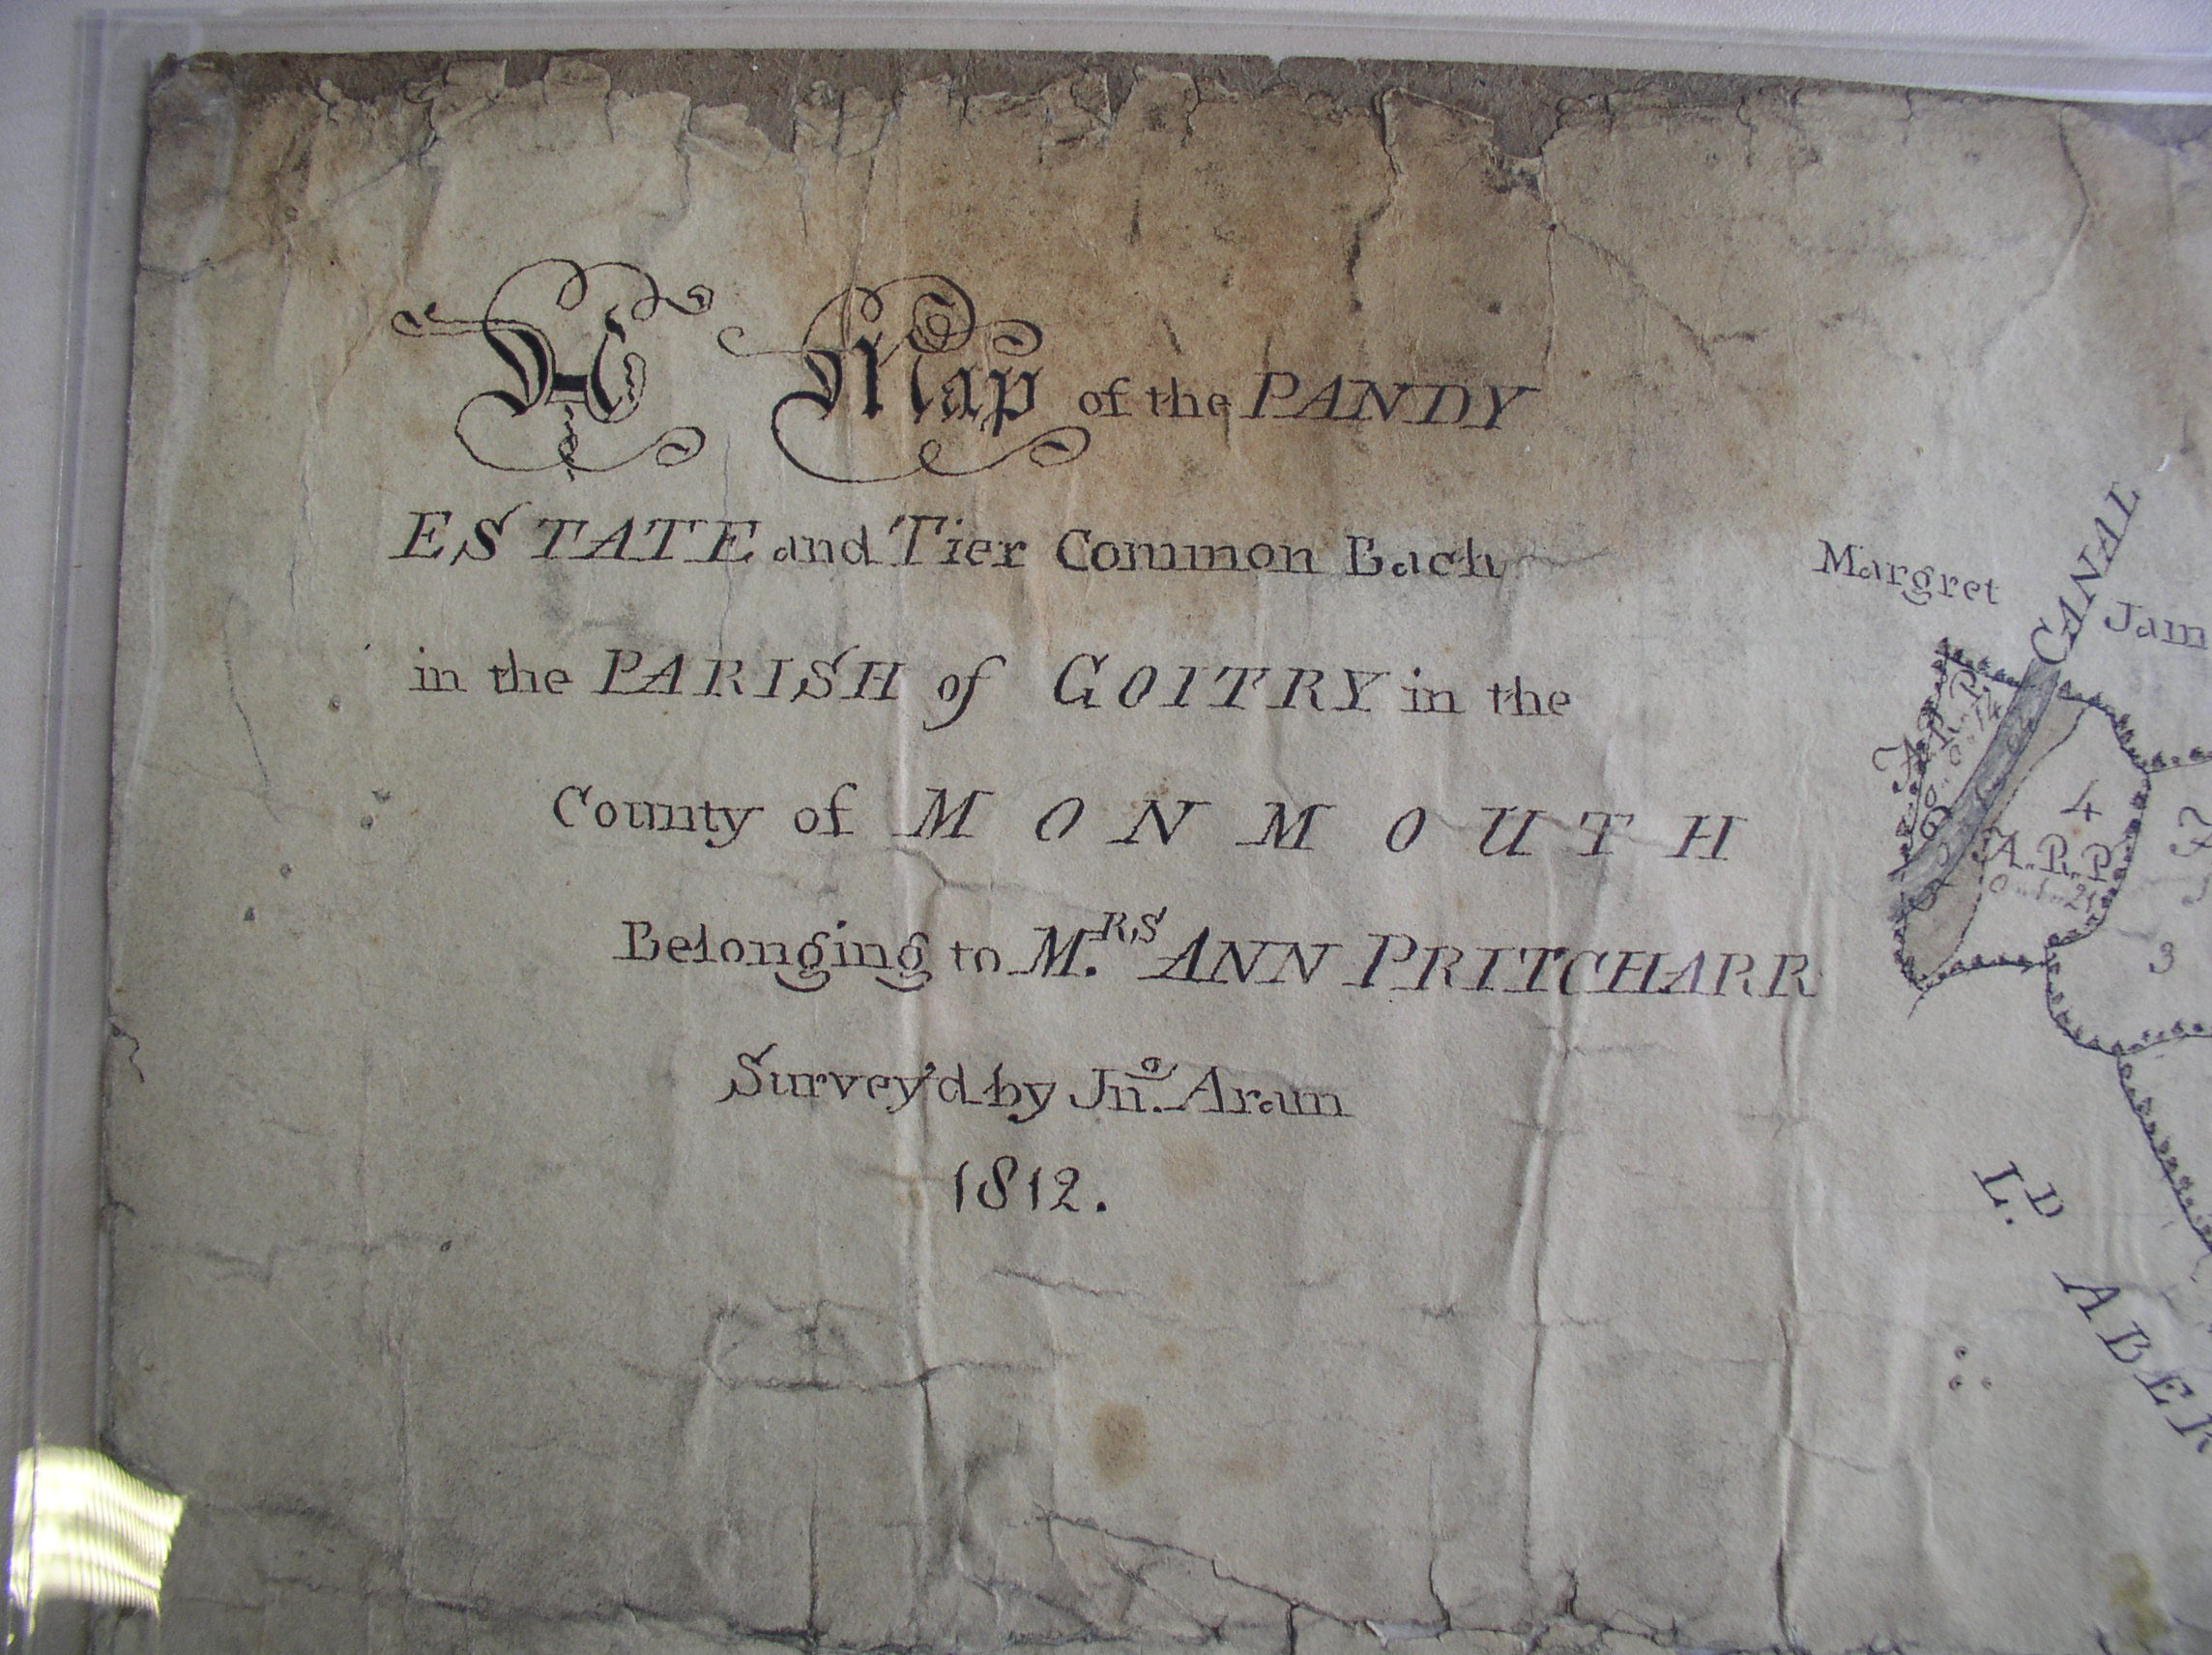 A Map of the PANDY
ESTATE and Tier Common Bach
in the PARISH of GOITRY in the
County of MONMOUTH
Belonging to M.RS ANN PRITCHARR
Survey'd by Jn.o Aram
1812.
Margret
CANAL
Jam
A.R.P.
0.0.14
6
4
A.R.P
0.1.21
5
3
L.D ABER